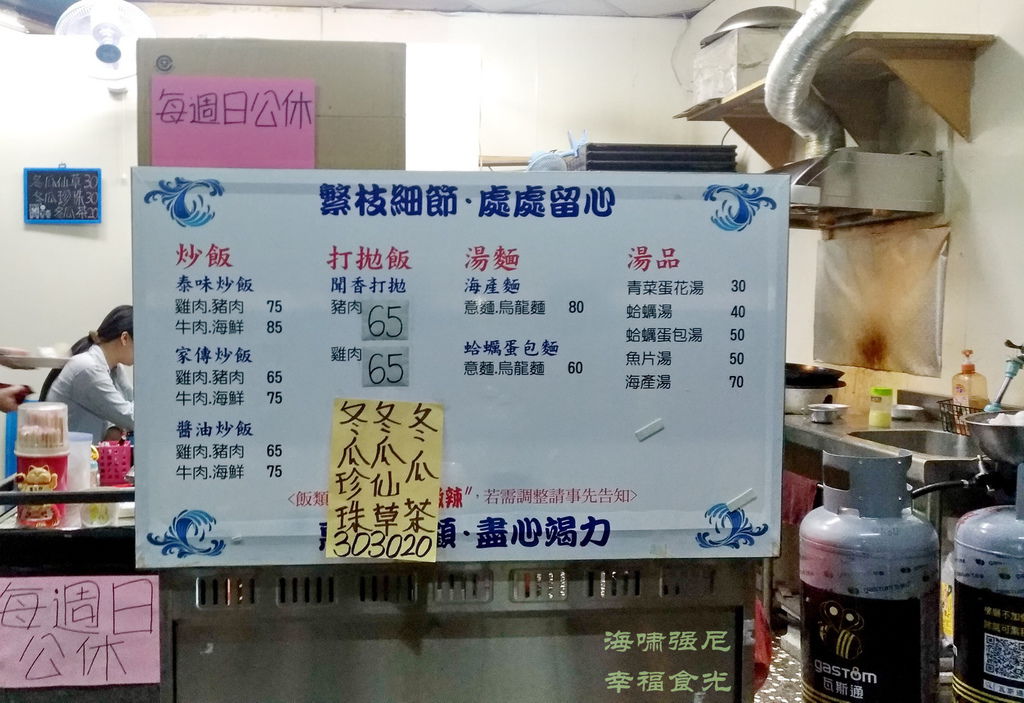 每週日公休
冬瓜仙草30
冬瓜珍珠30
冬瓜茶20
繁枝細節·處處留心
炒飯
泰味炒飯
雞肉.豬肉 75
牛肉.海鮮 85
家傳炒飯
雞肉.豬肉 65
牛肉.海鮮 75
醬油炒飯
雞肉.豬肉 65
牛肉.海鮮 75
打拋飯
聞香打拋
豬肉 65
雞肉 65
湯麵
海產麵
意麵.烏龍麵 80
蛤蠣蛋包麵
意麵.烏龍麵 60
湯品
青菜蛋花湯 30
蛤蠣湯 40
蛤蠣蛋包湯 50
魚片湯 50
海產湯 70
冬瓜茶20
冬瓜仙草30
冬瓜珍珠30
<飯類 辣”, 若需調整請事先告知>
顧·盡心竭力
每週日
公休
gastom
瓦斯通
海啸强尼
幸福食光